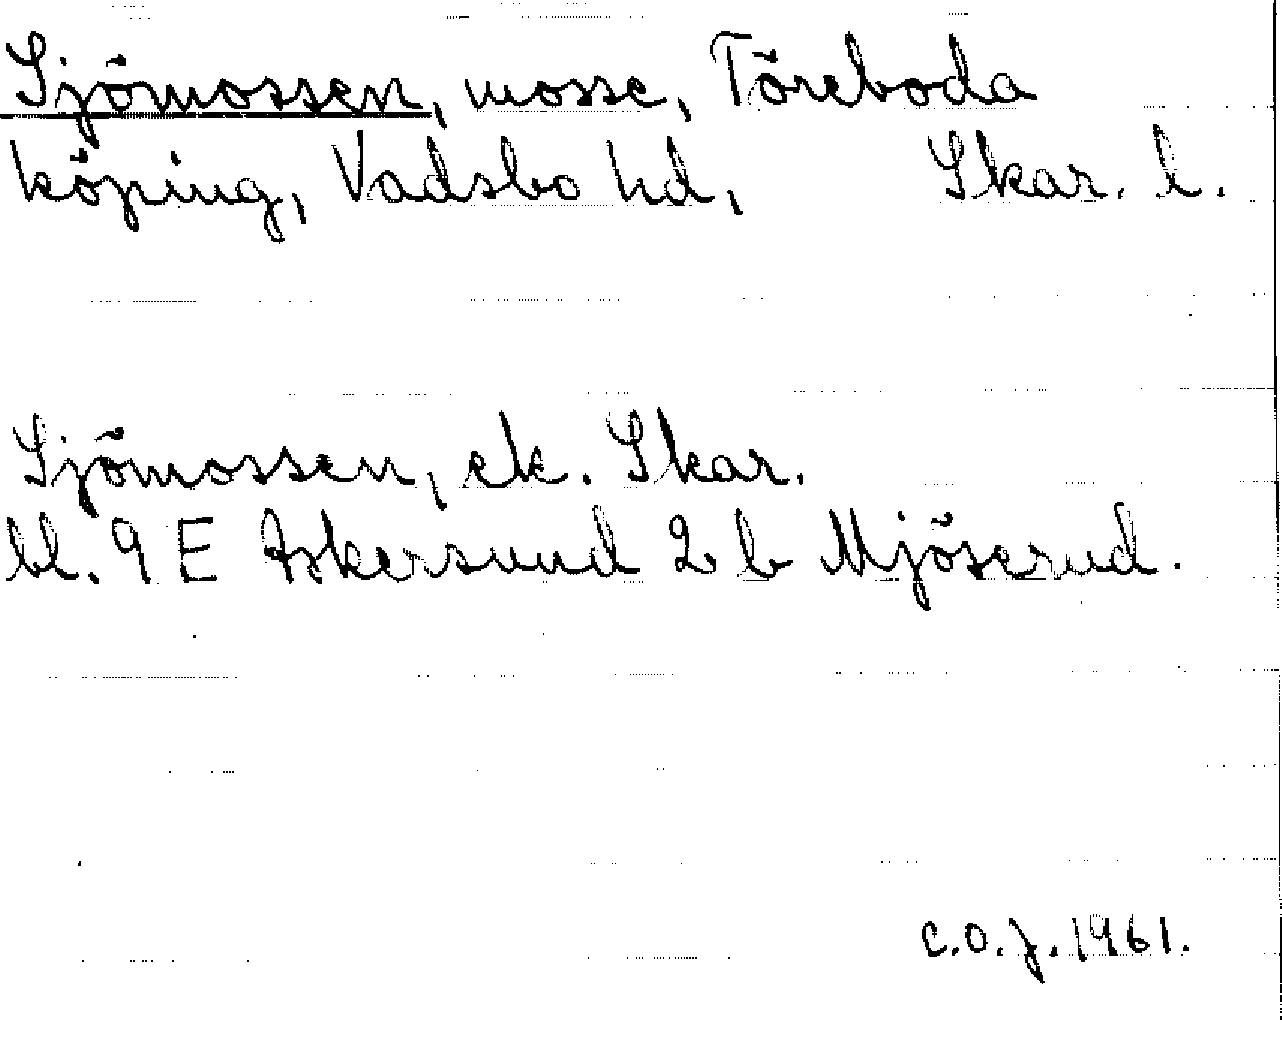 Sjömossen, mosse, Töreboda
köping, Vadsbo hd, Skar. l.
Sjömossen, ek. Skar.
bl. 9 E Askersund 2 b Mjöserud.
C.O.J. 1961.